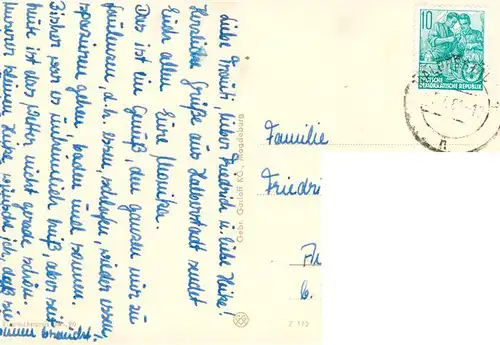 Liebe Trauti, lieber Friedrich u. liebe Heike!
Herzliche Grüße aus Halberstadt sendet
Euch allen Eure Monika.
Dies ist ein Gruß, den ganzen mir zu
d.h. essen, schlafen, wieder essen,
spazieren gehen, baden und sonnen.
Bisher war es unheimlich heiß, aber seit
heute ist das Wetter nicht gerade schön.
kleinen Heike wünsche ich, daß sie
Gebr. Garloff KG., Magdeburg
10
DEUTSCHE
DEMOKRATISCHE REPUBLIK
Familie
Friedri